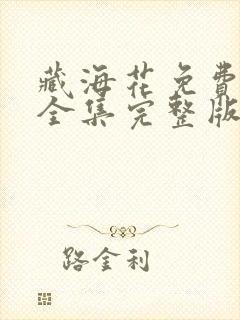 藏海花免費
全集完整版
路金利